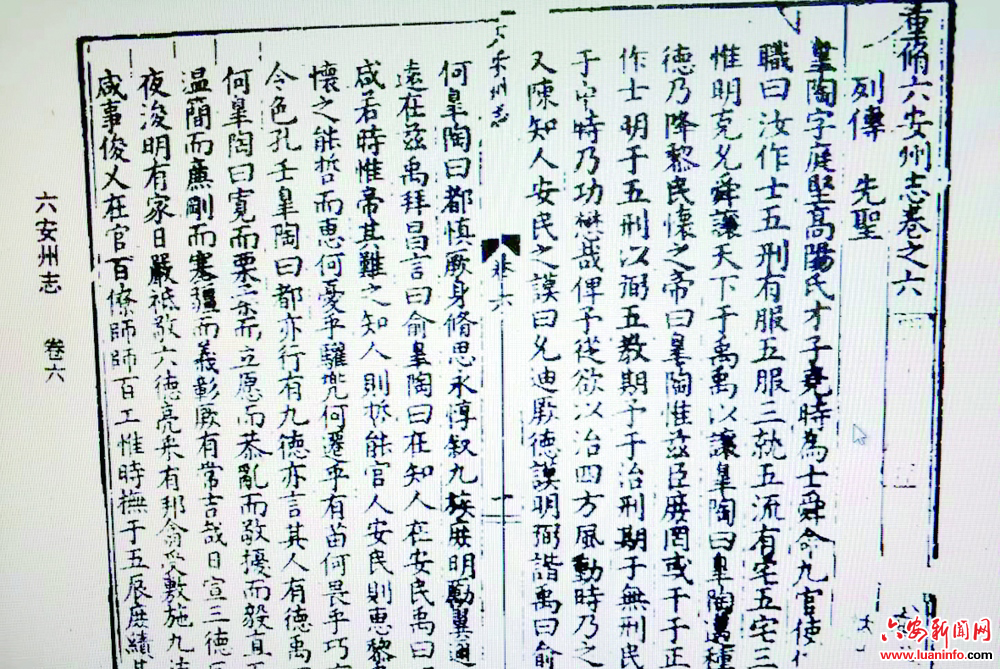 重脩六安州志卷之六
列傳　先聖
皐陶字庭堅高陽氏才子堯時為士舜命九官使
職曰汝作士五刑有服五服三就五流有宅五宅三
惟明克允舜讓天下于禹禹以讓皐陶曰皐陶邁種
德乃降黎民懷之帝曰皐陶惟兹臣庶罔或干予正
作士明于五刑以弼五教期于予治刑期于無刑民
于中時乃功懋哉俾予從欲以治四方風動時乃之
又陳知人安民之謨曰允迪厥德謨明弼諧禹曰俞
六安州志　卷六　一
何皐陶曰都慎厥身脩思永惇叙九族庶明勵翼邇
遠在兹禹拜昌言曰俞皐陶曰在知人在安民禹曰
咸若時惟帝其難之知人則哲能官人安民則惠黎
懷之能哲而惠何憂乎驩兜何遷乎有苗何畏乎巧
令色孔壬皐陶曰都亦行有九德亦言其人有德禹
何皐陶曰寬而栗柔而立愿而恭亂而敬擾而毅直
温簡而廉剛而塞彊而義彰厥有常吉哉日宣三德
夜浚明有家日嚴祗敬六德亮采有邦翕受敷施九
咸事俊乂在官百僚師師百工惟時撫于五辰庶績
六安州志　卷六
六安新闻网
www.luaninfo.com